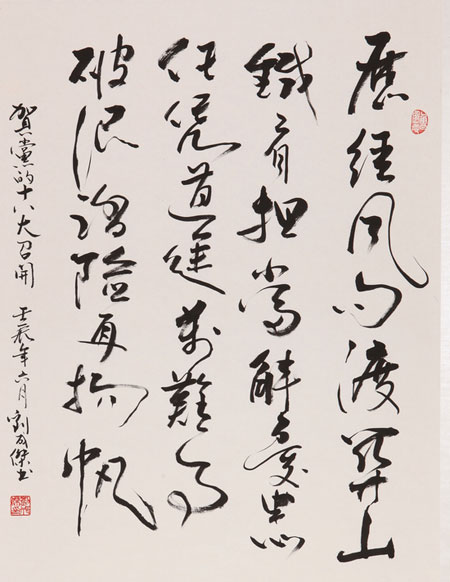 歷經風雨渡關山
鐵肩担當解憂患
任凭道難
破浪險再揚帆
賀黨的十八大召開 壬辰年六月劉傑書